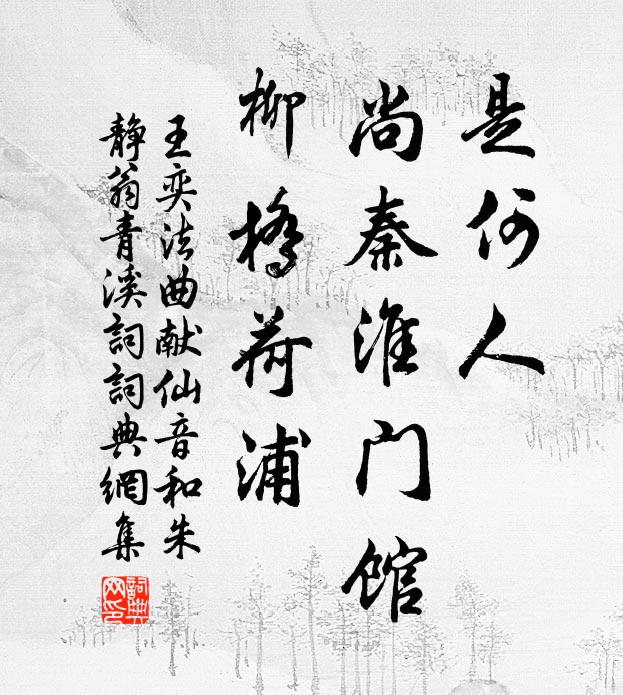 是何人
尚秦淮门馆
柳桥荷浦
王奕法曲献仙音和朱
静翁青溪詞詞典網集